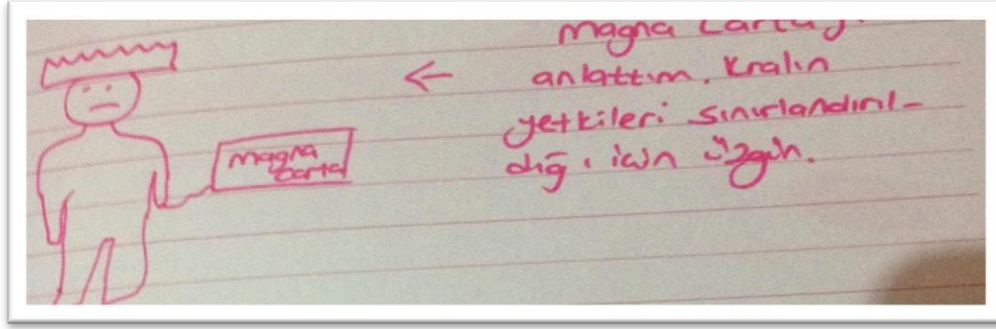 magna
carta
Magna Carta'yı
anlattım. Kralın
yetkileri sınırlandırıl-
dığı için üzgün.